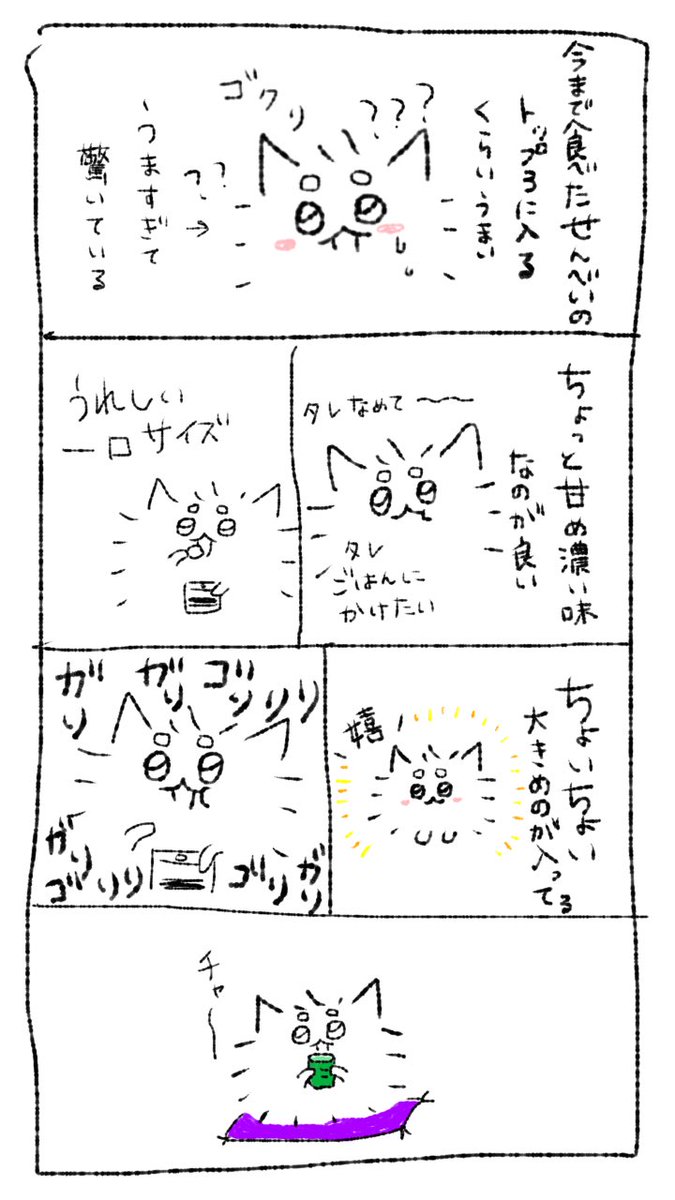 今まで食べたせんべいの
トップ3に入る
くらいうまい
???
ゴクリ
??→
うますぎて
驚いている
ちょっと甘め濃い味
なのが良い
タレなめて〜〜
タレ
ごはんに
かけたい
うれしい
一口サイズ
ちょいちょい
大きめのが入ってる
嬉
ゴリリリ
ガリ
ガリ
ガリ
ゴリリリ
ゴリリ
ガリ
チャー